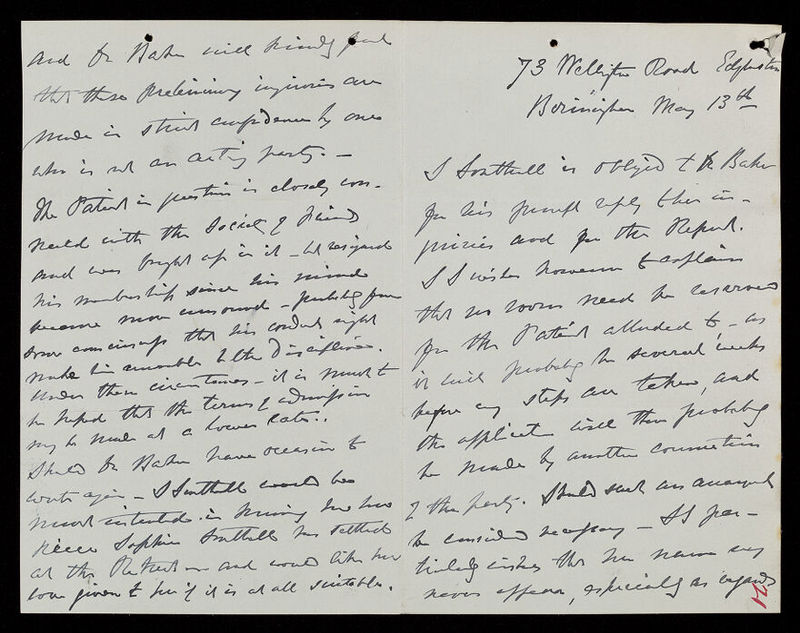 73 Wellington Road Edgbaston
Birmingham May 13th
I Southall is obliged to Dr Baker
for his prompt reply to her in-
quiries and for the Report.
I S wishes however to explain
that no room need be reserved
for the Patient alluded to - as
it will probably be several weeks
before any steps are taken, and
the application will then probably
be made by another connection
of the party. Should such an arrangemt
be considered necessary - I S par-
ticularly wishes that her name may
never appear, especially as regards
and Dr Baker will kindly
that these preliminary inquiries are
made in strict confidence by one
who is not an acting party. -
The Patient in question is closely con-
nected with the Society of Friends
and was brought up in it - he resigned
his membership since his mind
became more unsound - probably from
some consciousness that his conduct might
make him amenable to the discipline.
Under these circumstances - it is much to
be hoped that the terms of admission
may be made at a lower rate.
Should Dr Baker have occasion to
write again - I Southall would be
much interested in knowing how her
niece Sophia Southall has settled
at the Retreat - and would like her
love given to her if it is at all suitable.